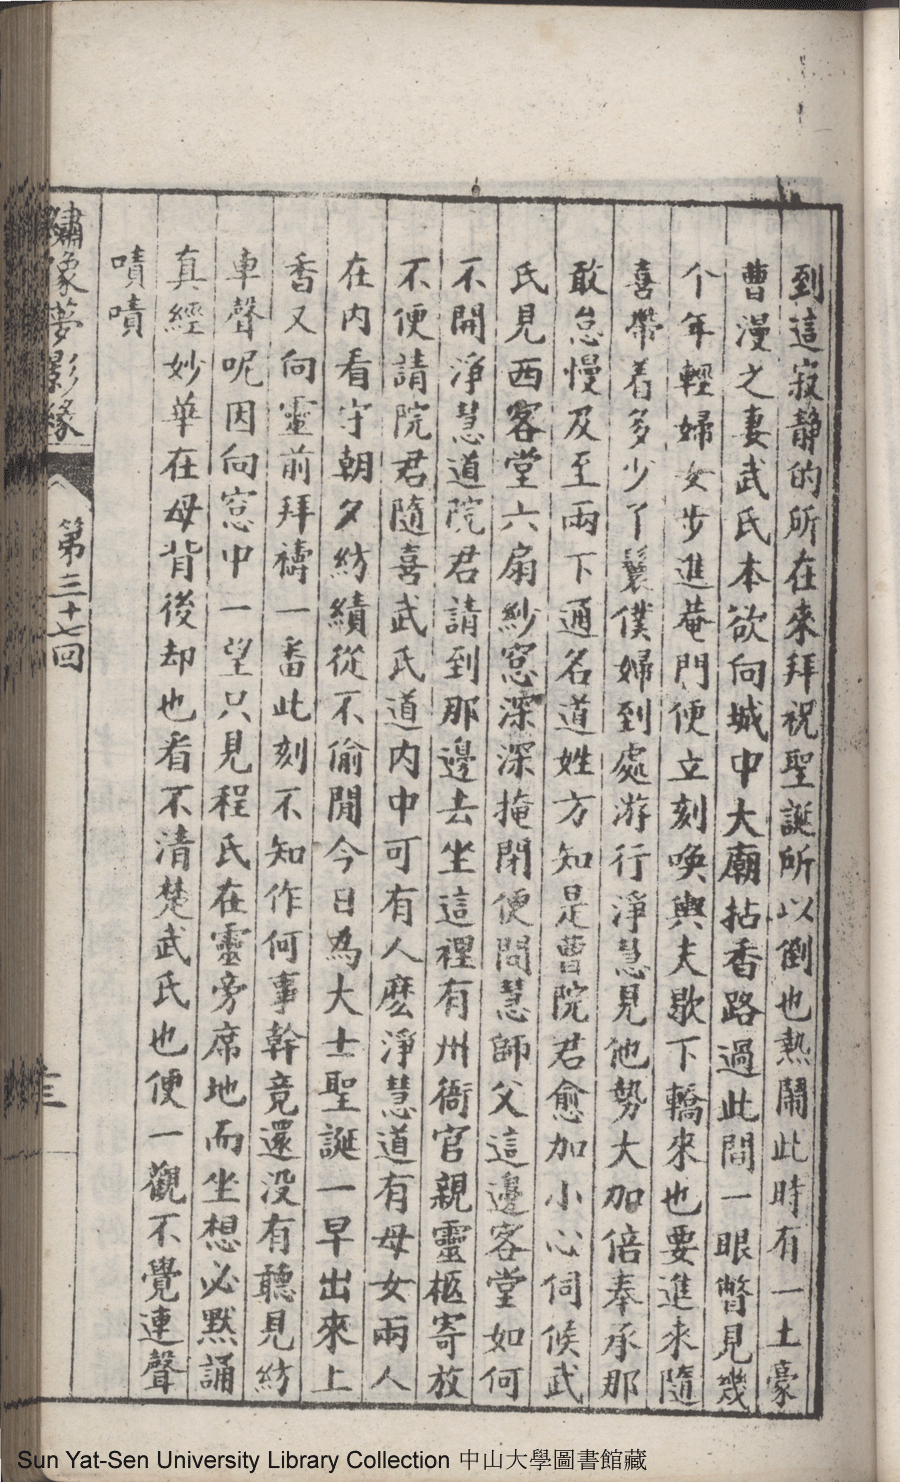 到這寂静的所在來拜祝聖誕所以倒也熱鬧此時有一土豪
曹漫之妻武氏本欲向城中大廟拈香路過此間一眼瞥見幾
个年輕婦女步進菴門便立刻喚輿夫歇下轎來也要進來隨
喜帶着多少了鬟僕婦到處游行淨慧見他勢大加倍奉承那
敢怠慢及至兩下通名道姓方知是曹院君愈加小心伺候武
氏見西客堂六扇紗窓深深掩閉便問慧師父這邊客堂如何
不開淨慧道院君請到那邊去坐這裡有州衙官親靈柩寄放
不便請院君隨喜武氏道内中可有人麽淨慧道有母女兩人
在内看守朝夕紡績從不偷閒今日為大士聖誕一早出來上
香又向靈前拜禱一番此刻不知作何事幹竟還没有聽見紡
車聲呢因向窓中一望只見程氏在靈旁席地而坐想必默誦
真經妙華在母背後却也看不清楚武氏也便一觀不覺連聲
嘖嘖
繡像夢影緣
第三十七回
Sun Yat-Sen University Library Collection 中山大學圖書館藏